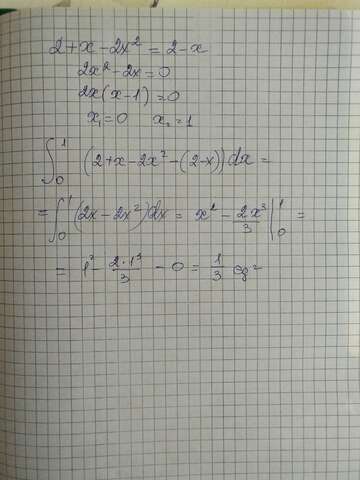 2+x-2x²=2-x
2x²-2x=0
2x(x-1)=0
x₁=0 x₂=1
∫₀¹ (2+x-2x²-(2-x))dx=
=∫₀¹(2x-2x²)dx= x² - 2x³/3 |₀¹ =
= 1² - 2·1³/3 - 0 = 1/3 eg²